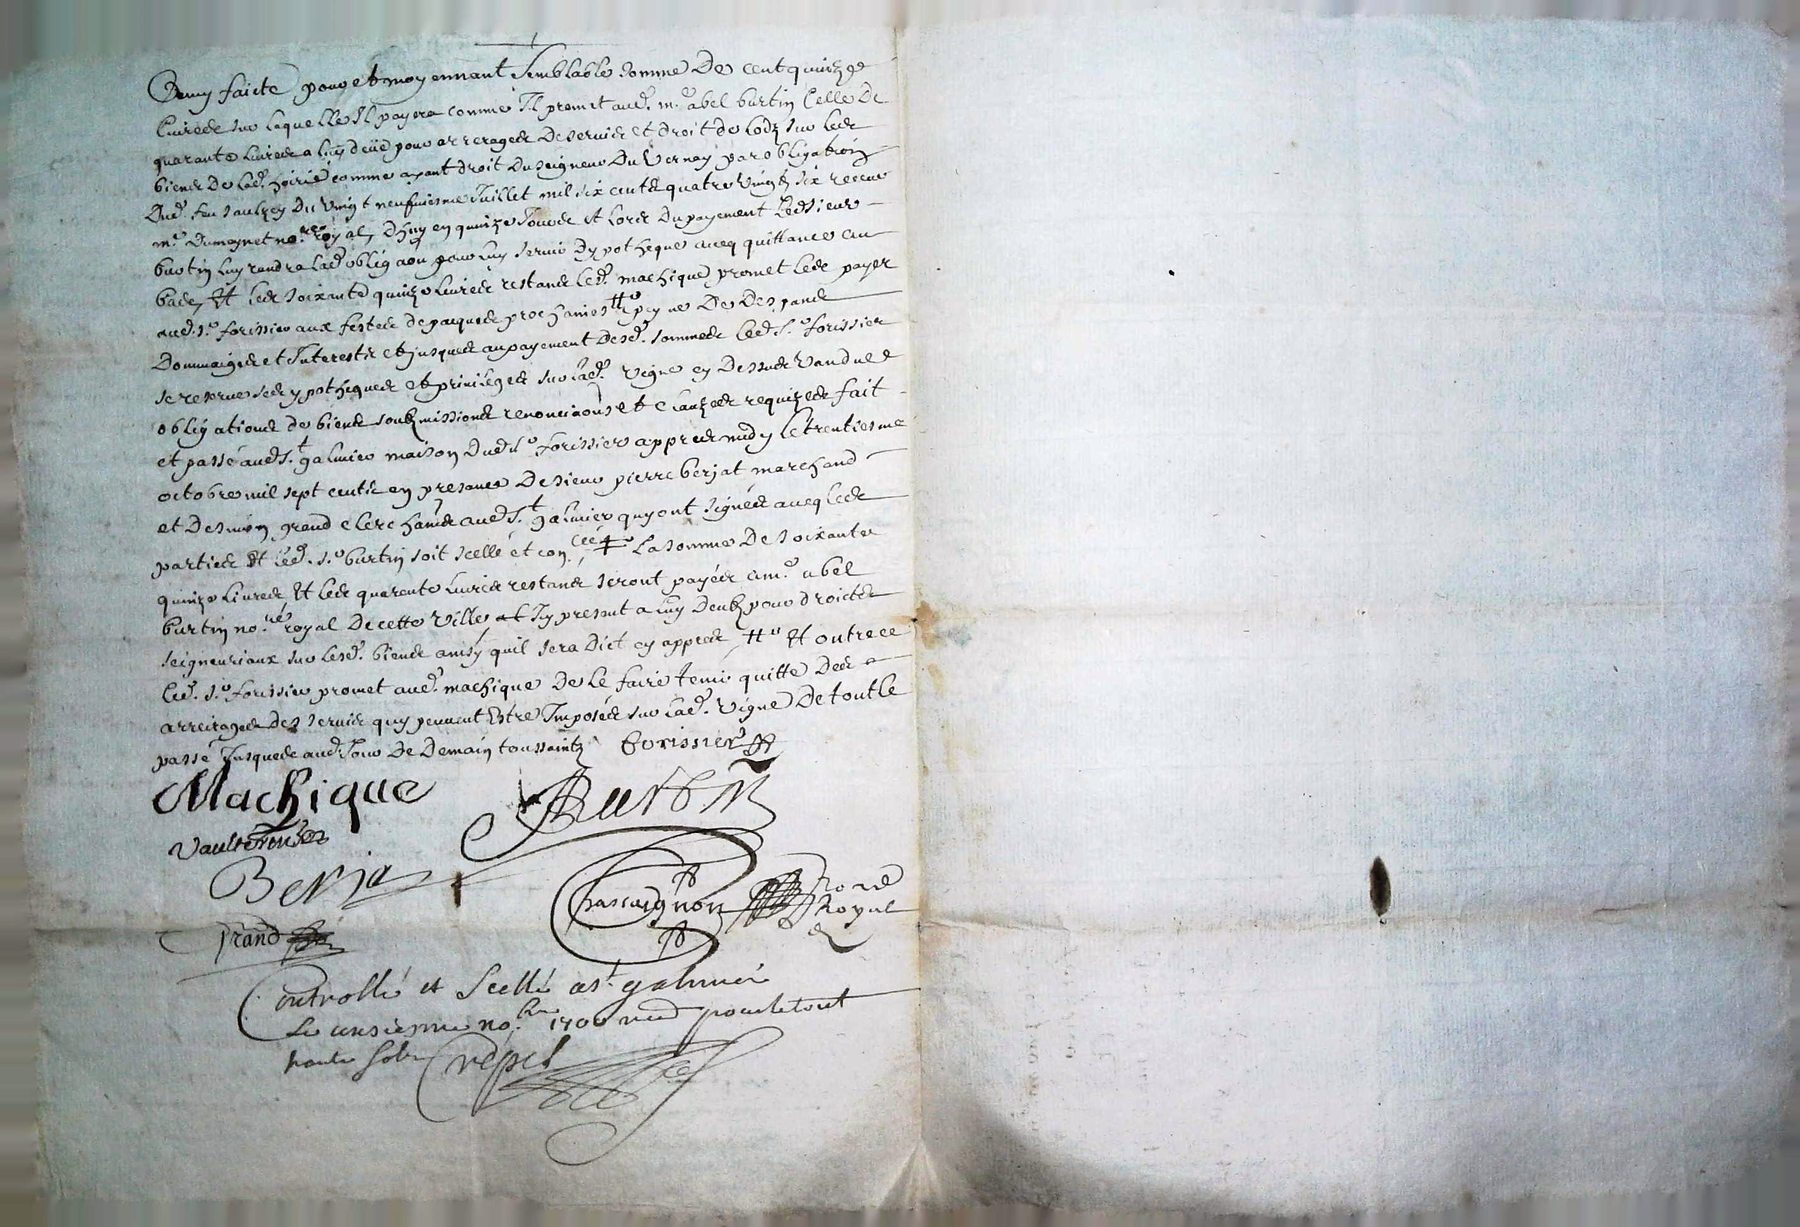 Demy faicte pour et moyennant semblable somme de cent quinze
livres sur laquelle Il payera comme Il promet aud. m.e abel burtin Celle de
quarante livres a luy deüe pour arrerages de servis et droit de lodz sur les
biens de lad. hoirie comme ayant droit du seigneur du Vernay par obligation
dud. feu sauzey du vingt neufviesme Juillet mil six cents quatre vingts six receue
m.e dumoynet no.re royal, dhuy en quinze Jours et lors du payement Ledsieur
burtin luy rendra lad. obligaon pour luy servir dypotheque avec quittance au
bas, Et les soixante quinze livres restans led. machique promet les payer
aud. s.r forissier aux festes de pacques prochaines a peyne de Des pans
Dommaiges et Interests et jusques au payement desd. sommes led. s.r forissier
se reserve ses ypotheques et privileges sur lad. vigne cy dessus vandue
obligations de biens soubzmissions renonciaons et clauzes requizes fait
et passé aud. s.t galmier maison dud. s.r forissier appres midy le trentiesme
octobre mil sept cents en presance de sieur pierre berjat marchand
et de simon grand clerc hants aud. s.t galmier quy ont signés avec les
parties Et led. s.r burtin soit scellé et con.cée # La somme de soixante
quinze livres Et les quarante livres restans seront payées a m.e abel
burtin no.re royal de cette ville et Icy present a luy deubz pour droictz
seigneuriaux sur lesd. biens ainsy quil sera dict cy appres, # Et outre ce
led. s.r forissier promet aud. machique de le faire tenir quitte des
arreirages des servis quy peuvent Estre Imposés sur lad. vigne de tout le
passé Jusques aud. Jour de demain toussaintz forissier
Machique Burtin
Berja
Chascuignon No.re Royal
grand
Controllé et scellé a s.t galmier
Le unsieme no.bre 1700 pour le tout
Crépet